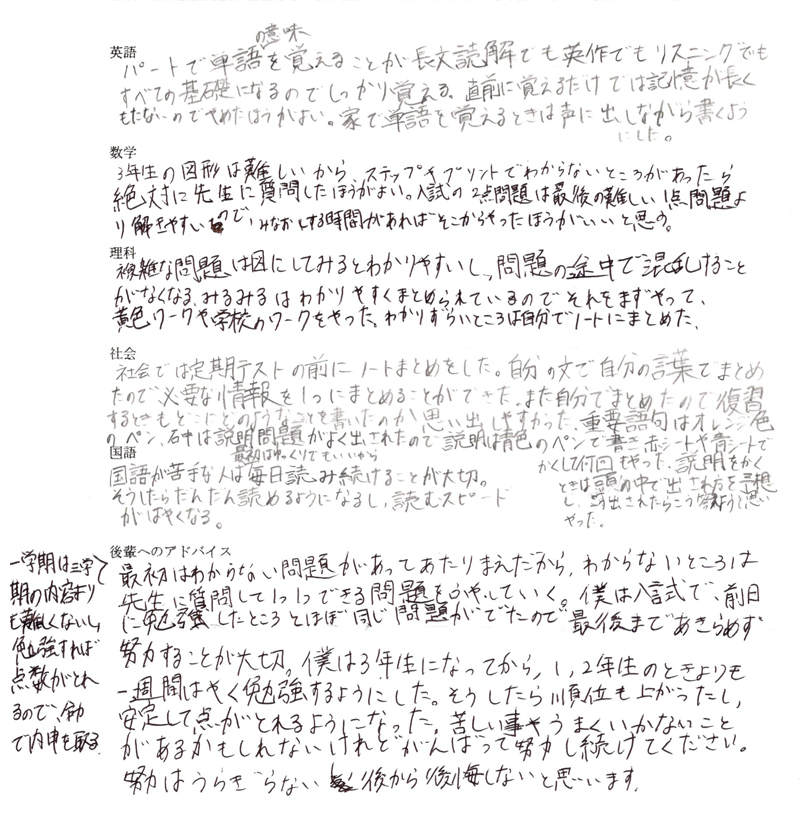 英語
の意味
パートで単語を覚えることが長文読解でも英作でもリスニングでも
すべての基礎になるのでしっかり覚える。直前に覚えるだけでは記憶が長く
もたないのでやめたほうがよい。家で単語を覚えるときは声に出しながら書くよう
にした。
数学
3年生の図形は難しいから、ステップやプリントでわからないところがあったら
絶対に先生に質問したほうがよい。入試の2点問題は最後の難しい1点問題よ
り解きやすいので、みなおしする時間があればそこからやったほうがいいと思う。
理科
複雑な問題は図にしてみるとわかりやすいし、問題の途中で混乱すること
がなくなる。みるみるはわかりやすくまとめられているのでそれをまずやって、
黄色ワークや学校のワークをやった。わかりずらいところは自分でノートにまとめた。
社会
社会では定期テストの前にノートまとめをした。自分の文で自分の言葉でまとめ
たので、必要な情報を1つにまとめることができた。また自分でまとめたので復習
するときもどこにどのようなことを書いたのか思い出しやすかった。重要語句はオレンジ色
のペン、石中は説明問題がよく出されたので説明は青色のペンで書き赤シートや青シートで
かくして何回もやった。説明をかく
ときは頭の中で出され方を予想
し、こう出されたらこう答えようと思い
やった。
国語
最初はゆっくりでもいいから
国語が苦手な人は毎日読み続けることが大切。
そうしたらだんだん読めるようになるし、読むスピード
がはやくなる。
後輩へのアドバイス
最初はわからない問題があってあたりまえだから、わからないところは
先生に質問して1つ1つできる問題をふやしていく。僕は入試で、前日
に勉強したところとほぼ同じ問題がでたので最後まであきらめず
努力することが大切。僕は3年生になってから、1,2年生のときよりも
一週間はやく勉強するようにした。そうしたら順位も上がったし、
安定して点がとれるようになった。苦しい事やうまくいかないこと
があるかもしれないけれどがんばって努力し続けてください。
努力はうらぎらない 後から後悔しないと思います。
一学期は二学
期の内容より
も難しくないし、
勉強すれば
点数がとれ
るので、
で内申を取る